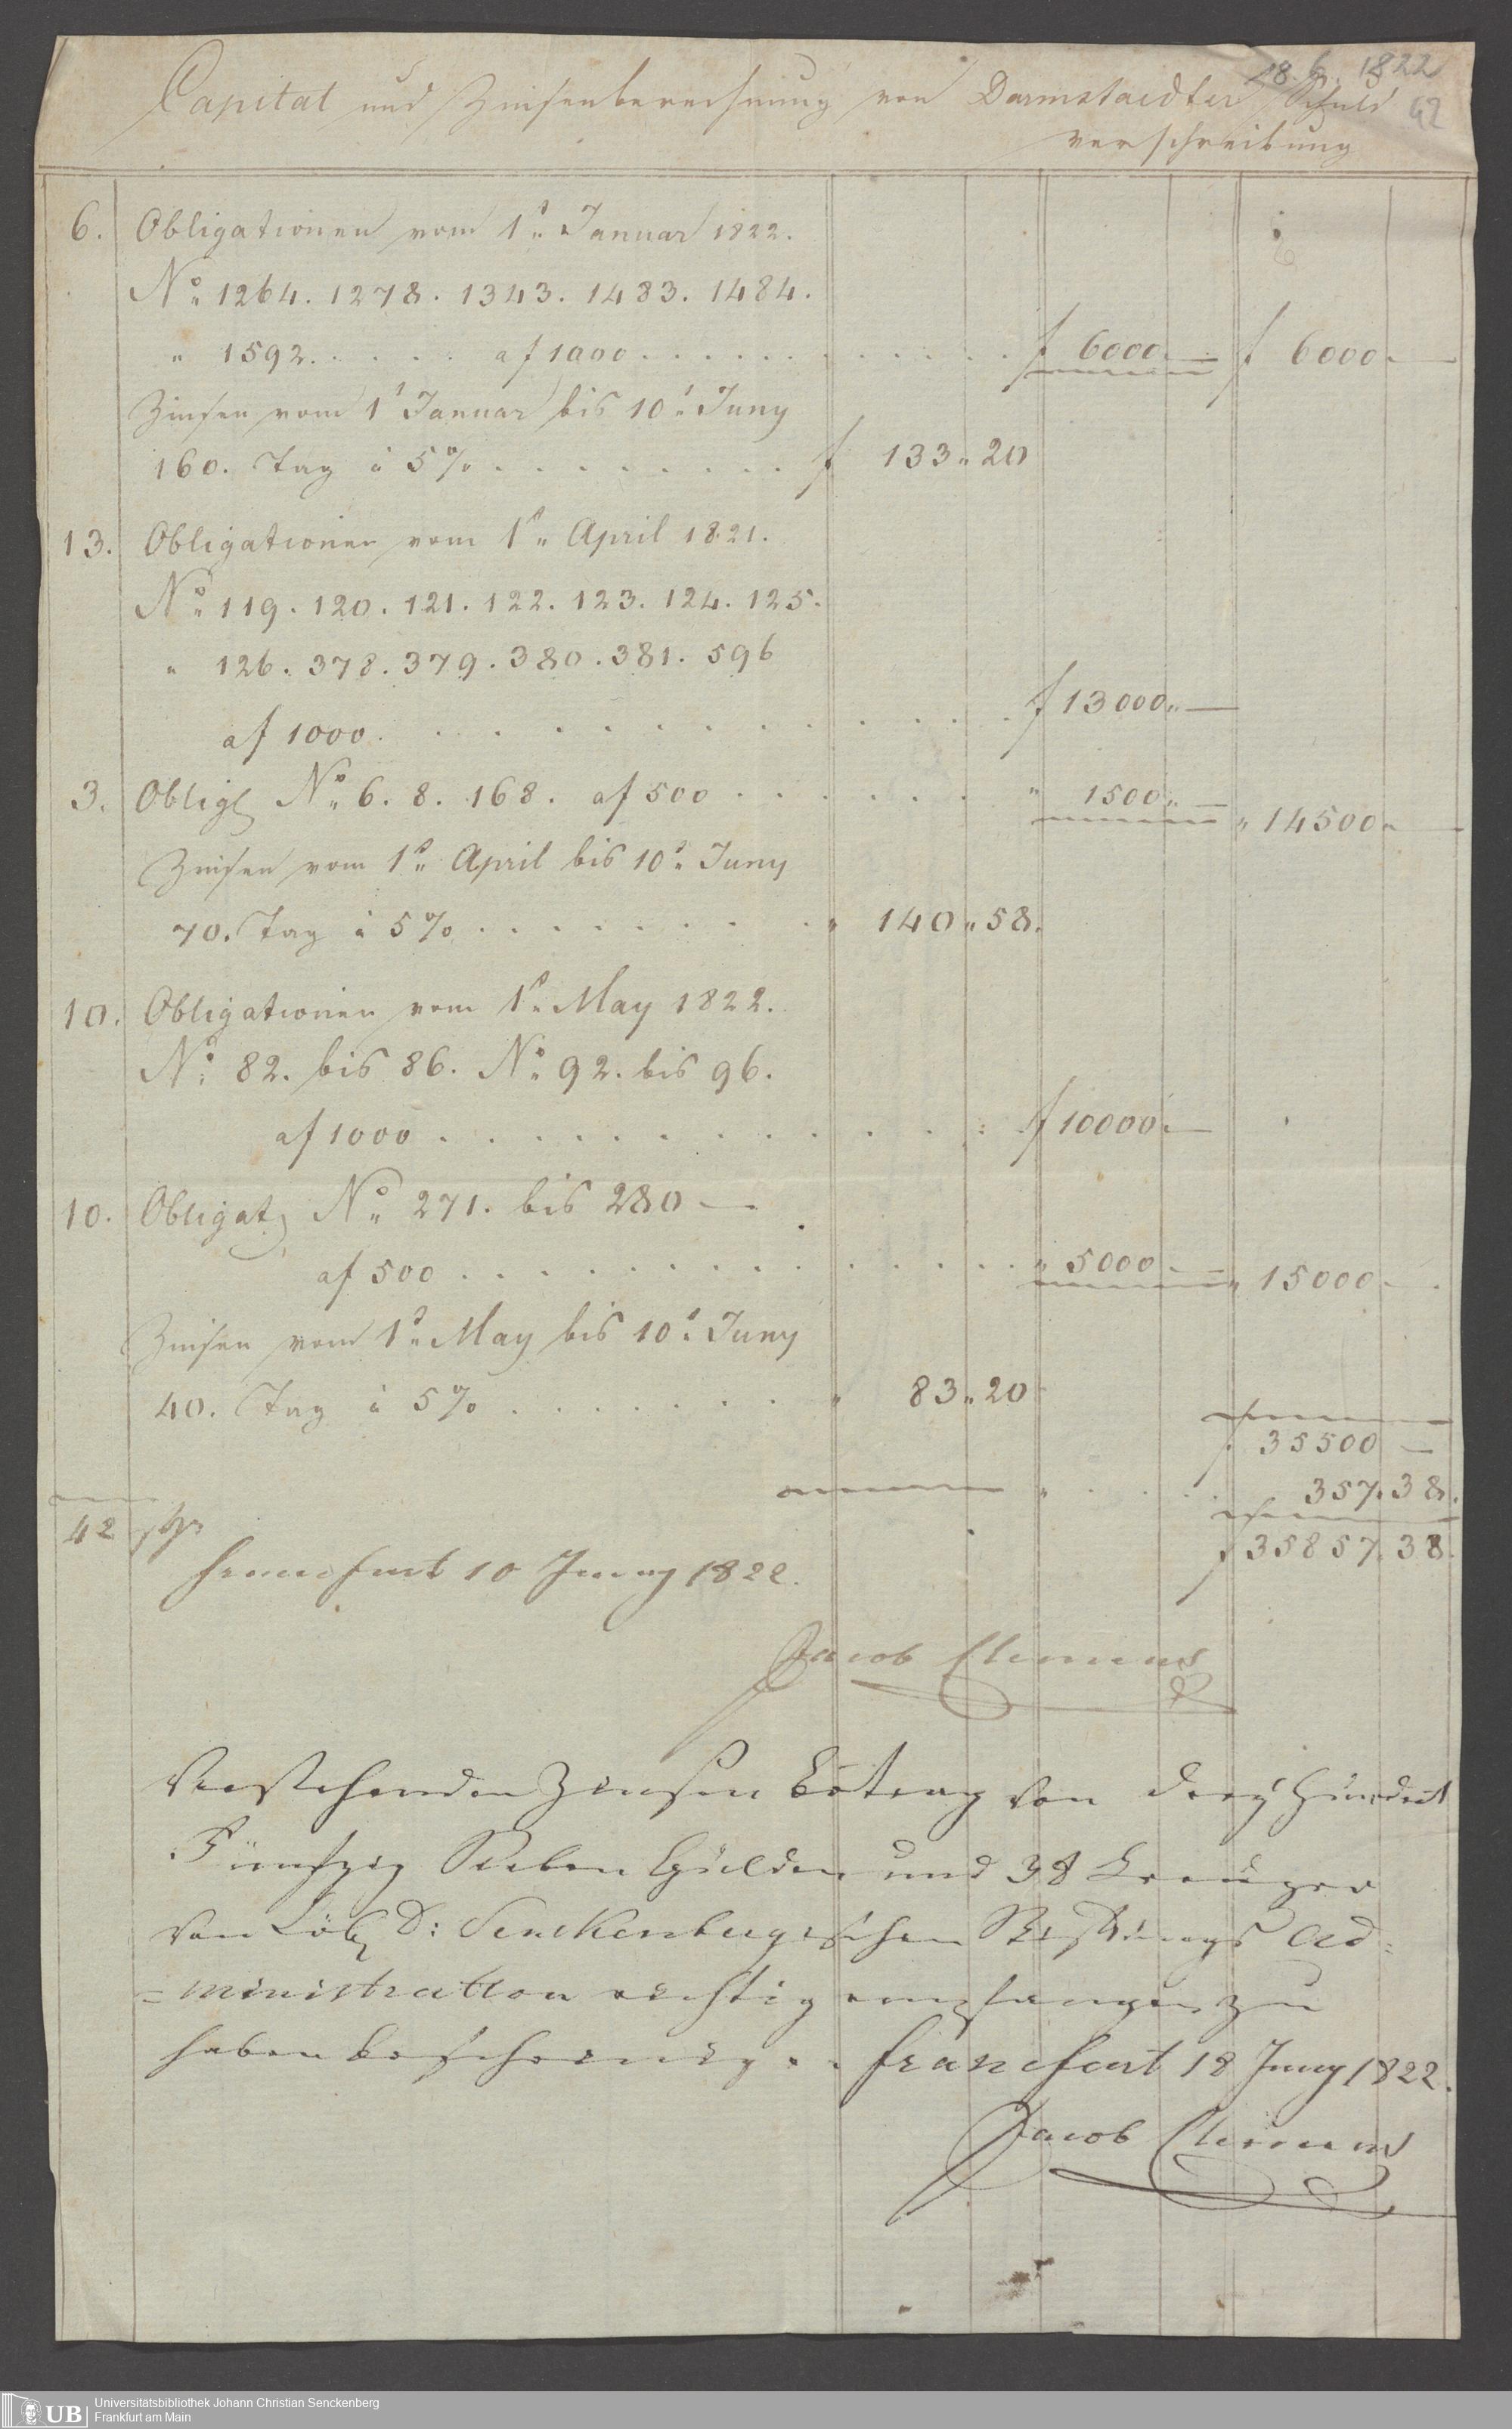 28. 6. 1822
42
Capital und Zinsenberechnung von Darmstaedter Schuld
verschreibung
6. Obligationen vom 1t„ Januar 1822.
No„ 1264. 1278. 1343. 1483. 1484.
„ 1592. . . . . a f 1000 . . . . . . . . . . f 6000 „— f 6000 „—
Zinsen vom 1t Januar bis 10t„ Juny
160. Tag à 5% . . . . . . . . f 133 „ 20
13. Obligationen vom 1t„ April 1821.
No„ 119. 120. 121. 122. 123. 124. 125.
„ 126. 378. 379. 380. 381. 596
a f 1000 . . . . . . . . . . . f 13000 „—
3. Oblig No„ 6. 8. 168. a f 500 . . . . . . „ 1500 „— „ 14500 „—
Zinsen vom 1t„ April bis 10t„ Juny
70. Tag à 5% . . . . . . . . „ 140 „ 58.
10. Obligationen vom 1t„ May 1822.
No„ 82. bis 86. No„ 92. bis 96.
a f 1000 . . . . . . . . . . . f 10000 „—
10. Obligat No„ 271. bis 280 —
a f 500 . . . . . . . . . . . „ 5000 „— „ 15000 „—
Zinsen vom 1t„ May bis 10t„ Juny
40. Tag à 5% . . . . . . . „ 83 „ 20
f 35500 —
„ . . . . 357. 38.
42
f 35857. 38.
Francfurt 10 Juny 1822.
Jacob Clemens
Vorstehenden Zinsen Betrag von Drey Hundert
Fünfzig Sieben Gulden und 38 Kreuzer
von Löbl D: Senckenbergischen Stiftungs Ad=
=ministration richtig empfangen zu
haben bescheinig . . Francfurt 18 Juny 1822.
Jacob Clemens
UB
Universitätsbibliothek Johann Christian Senckenberg
Frankfurt am Main